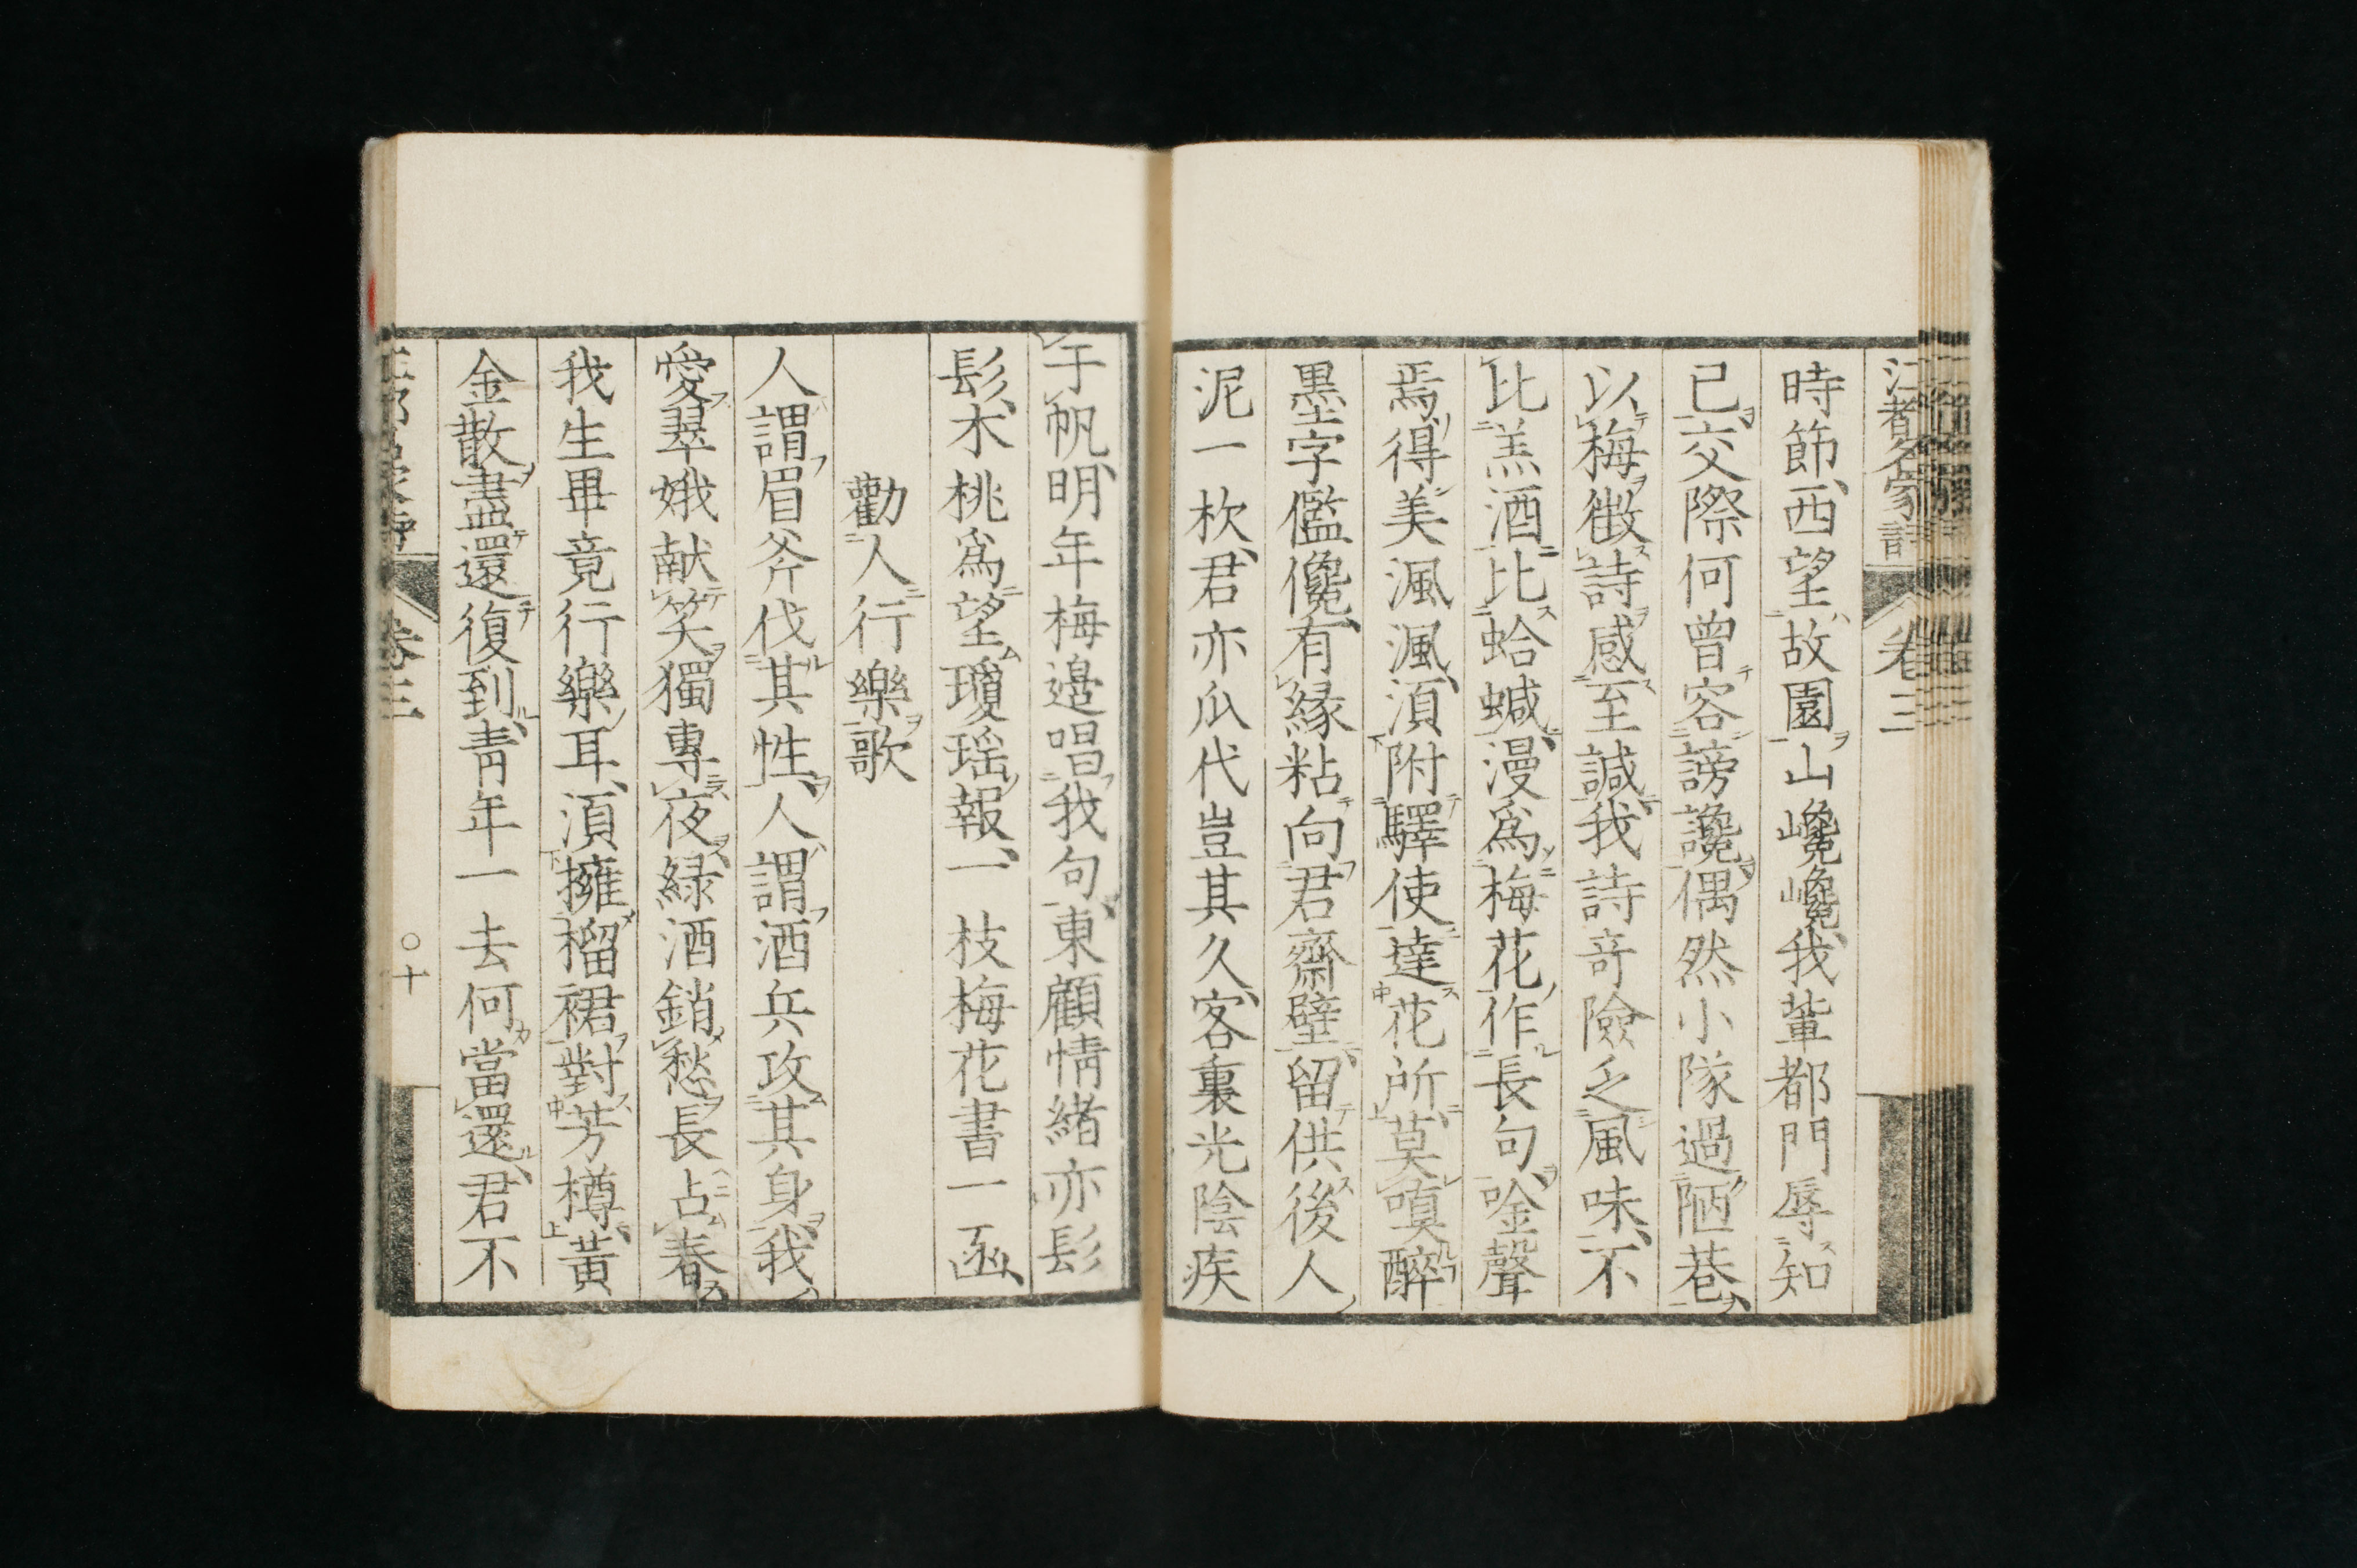 江都名家詩 卷三
時節西望故園山巉巉我輩都門辱知
己交際何曾容謗讒偶然小隊過陋巷
以梅徴詩感至諴我詩竒險乏風味不
比羔酒比蛤蝛漫爲梅花作長句唫聲
焉得美渢渢湏附驛使達花所莫嗔醉
墨字儖儳有縁粘向君齋壁留供後人
泥一杴君亦瓜代豈其久客裏光陰疾
于帆明年梅邉唱我句東顧情緒亦髟
髟木桃爲望瓊瑶報一枝梅花書一函
勸人行樂歌
人謂眉斧伐其性人謂酒兵攻其身我
愛翠娥献笑獨專夜緑酒銷愁長占春
我生畢竟行樂耳湏擁榴裙對芳樽黃
金散盡還復到靑年一去何當還君不
卷三
○十